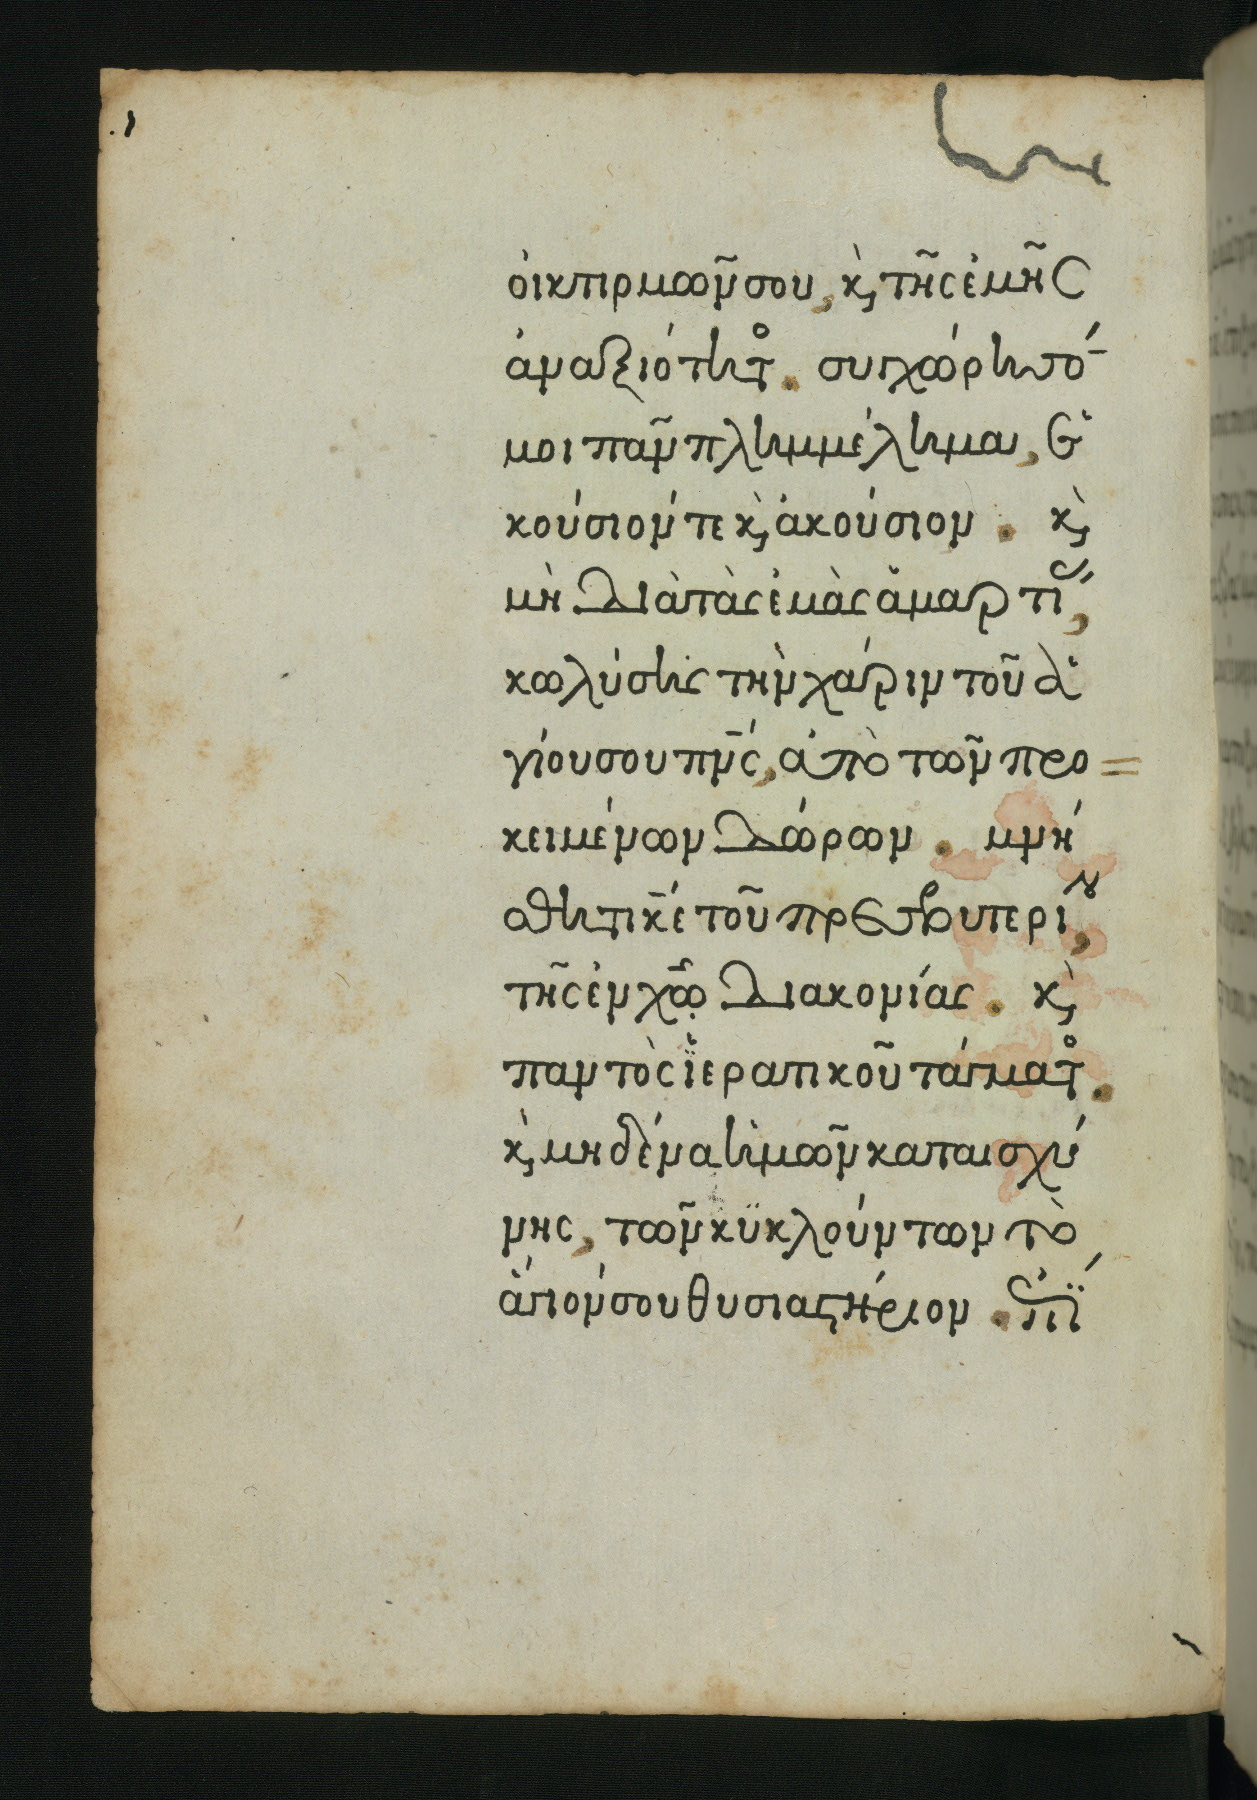 οἰκτιρμῶν σου, κ̀ τῆς ἐμῆς
ἀναξιότητ. συγχώρησό
μοι πᾶν πλημμέλημα, ἑ
κούσιόν τε κ̀ ἀκούσιον. κ̀
μὴ διὰ τὰς ἐμὰς ἁμαρτί,
κωλύσης τὴν χάριν τοῦ ἁ
γίου σου πν̅ς, ἀπὸ τῶν προ=
κειμένων δώρων. μνή
σθητι κ̅ε τοῦ πρεσβυτερί,
τῆς ἐν χω̅ διακονίας. κ̀
παντὸς ϊερατικοῦ τάγματ.
κ̀ μηδένα ἡμῶν καταισχύ
νης, τῶν κϋκλούντων τὸ
ἅγιόν σου θυσιαστήριον. ἐπί